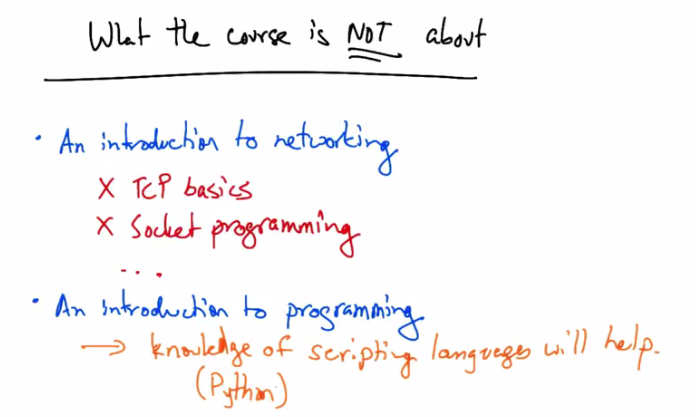 What the course is NOT about
• An introduction to networking
X TCP basics
X Socket programming
...
• An introduction to programming
→ knowledge of scripting languages will help.
(Python)